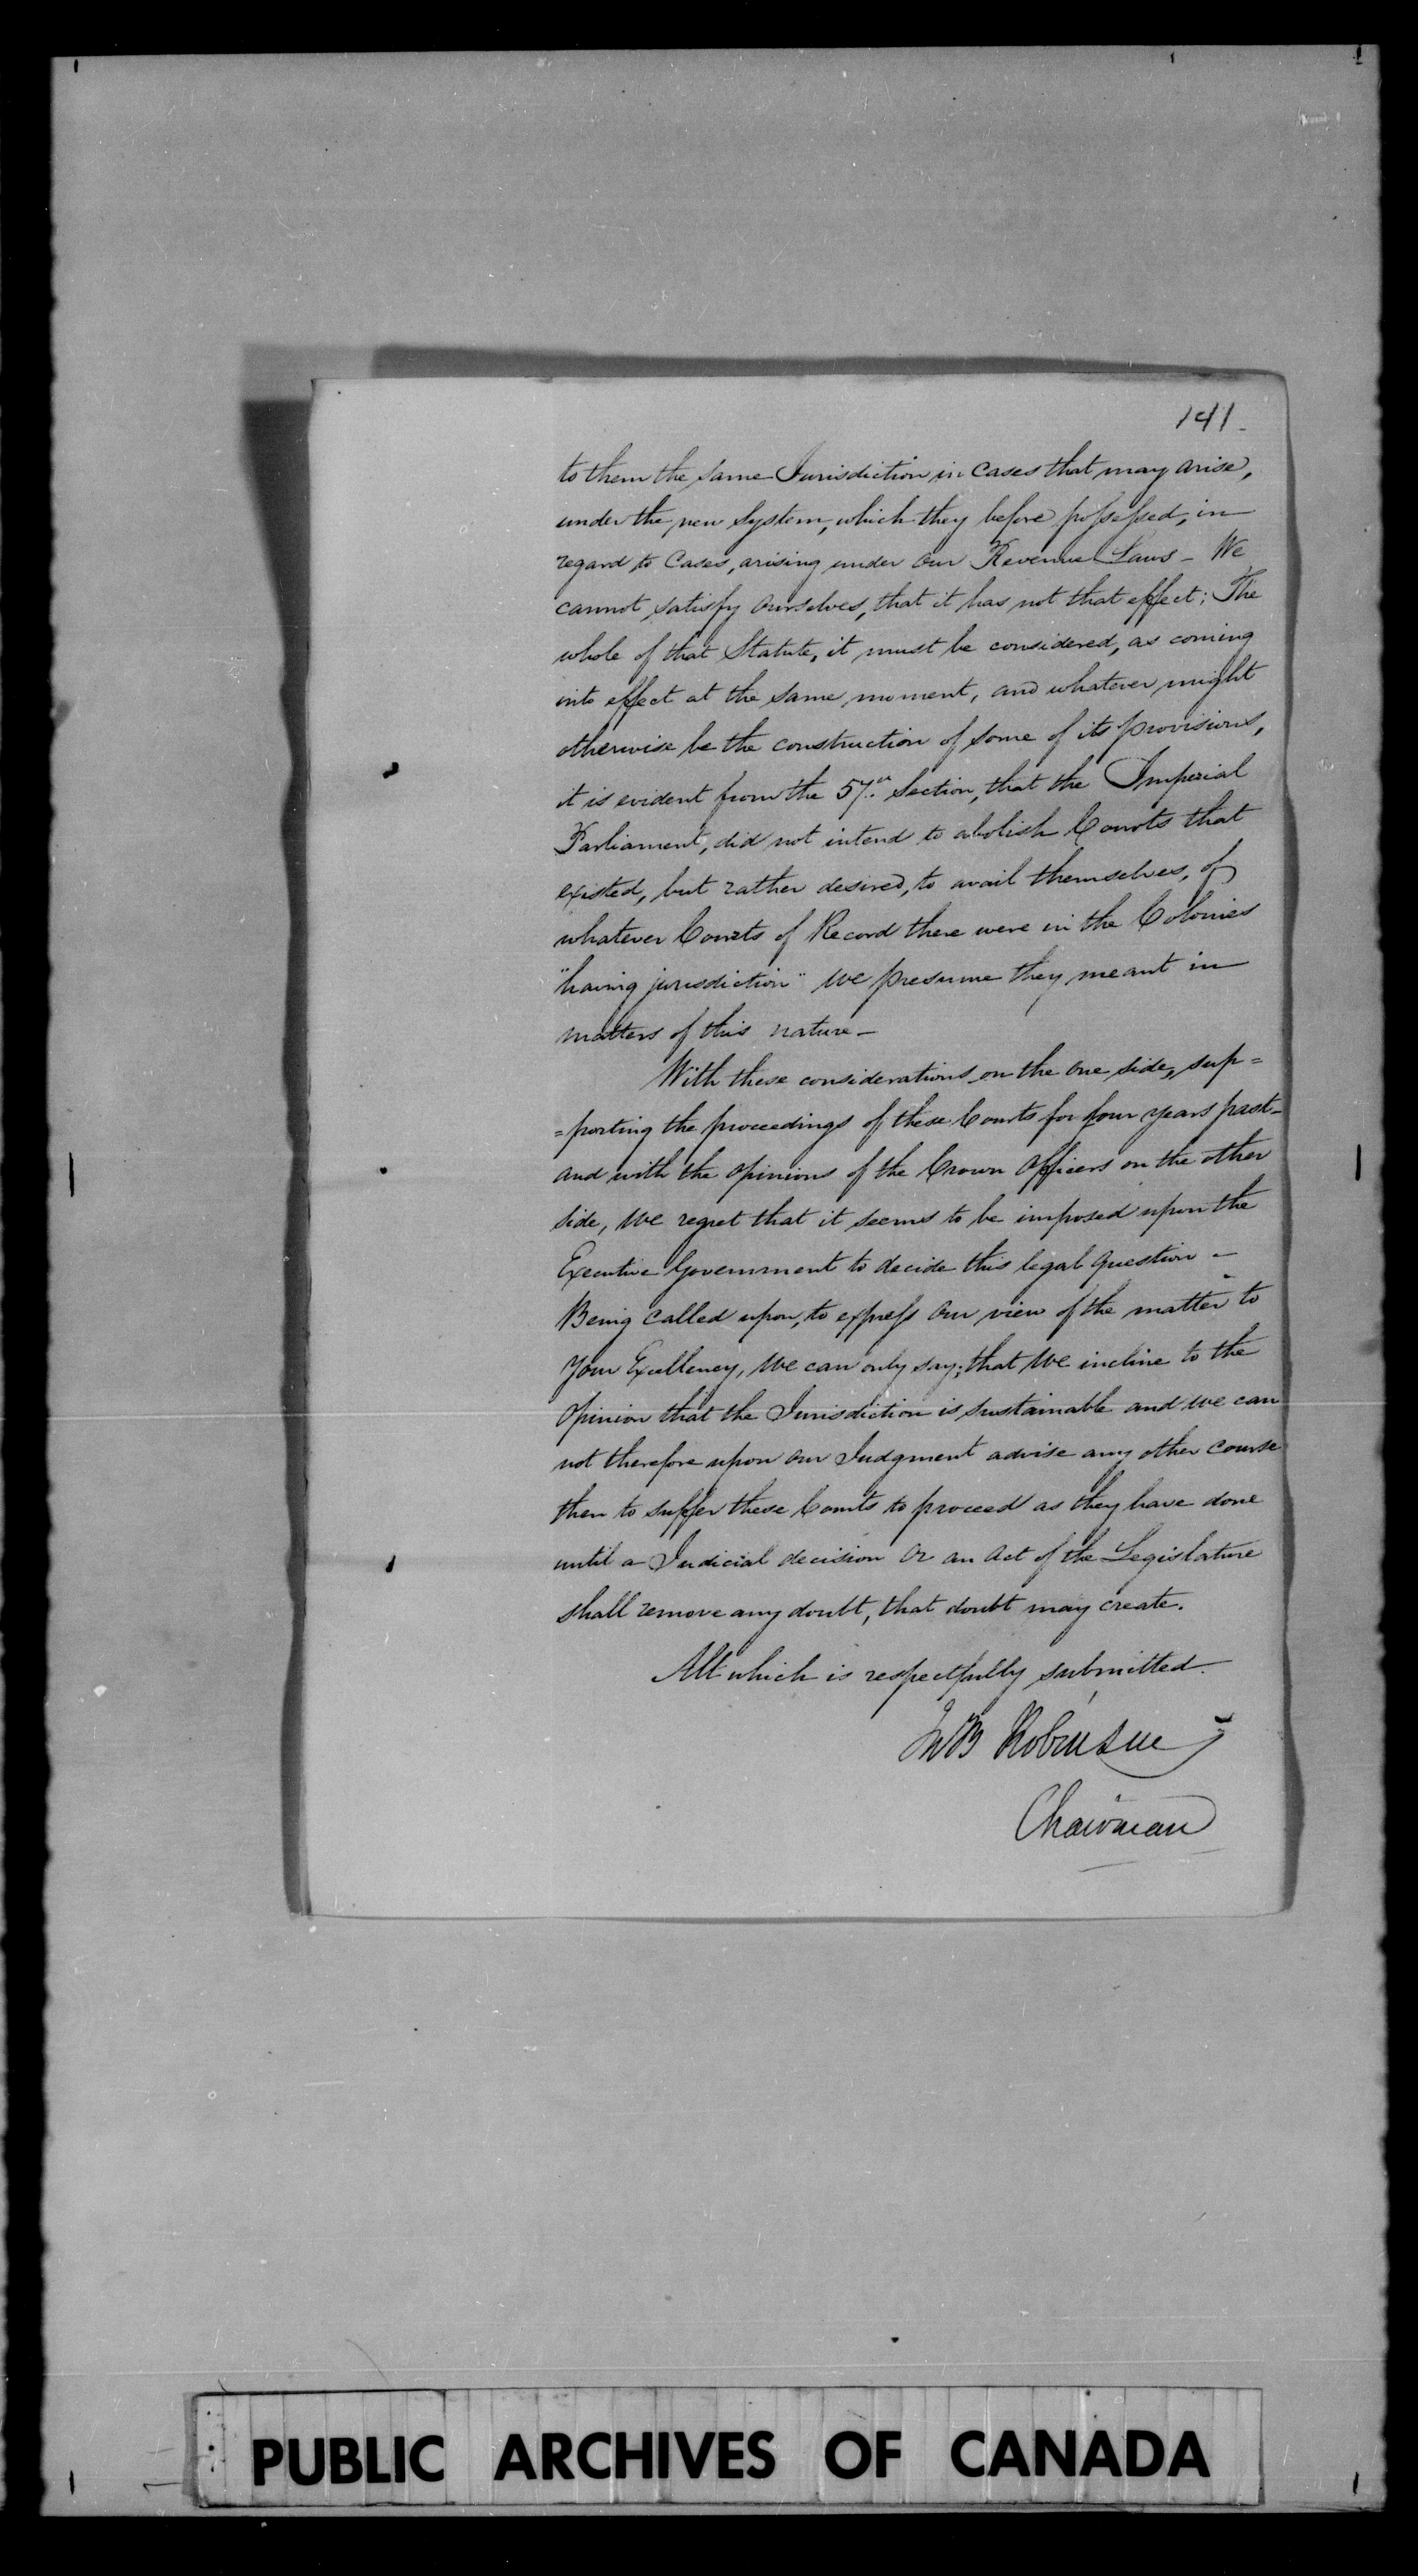 141.
to them the same Jurisdiction in Cases that may arise,
under the new System, which they before possessed, in
regard to Cases, arising under our Revenue Laws - We
cannot satisfy ourselves, that it has not that effect; The
whole of that Statute, it must be considered, as coming
into effect at the same moment, and whatever might
otherwise be the construction of some of its provisions,
it is evident from the 57th Section, that the Imperial
Parliament, did not intend to abolish Courts that
existed, but rather desired, to avail themselves, of
whatever Courts of Record there were in the Colonies
"having jurisdiction" We presume they meant in
matters of this nature -
With these considerations on the one side, sup=
=porting the proceedings of these Courts for four years past -
and with the opinions of the Crown Officers on the other
side, We regret that it seems to be imposed upon the
Executive Government to decide this legal question -
Being called upon, to express our view of the matter to
Your Excellency, We can only say; that We incline to the
Opinion that the Jurisdiction is sustainable and we can
not therefore upon our Judgment advise any other course
then to suffer these Courts to proceed as they have done
until a Judicial decision or an Act of the Legislature
shall remove any doubt, that doubt may create.
All which is respectfully submitted.
Jn B Robinson
Chairman
PUBLIC ARCHIVES OF CANADA